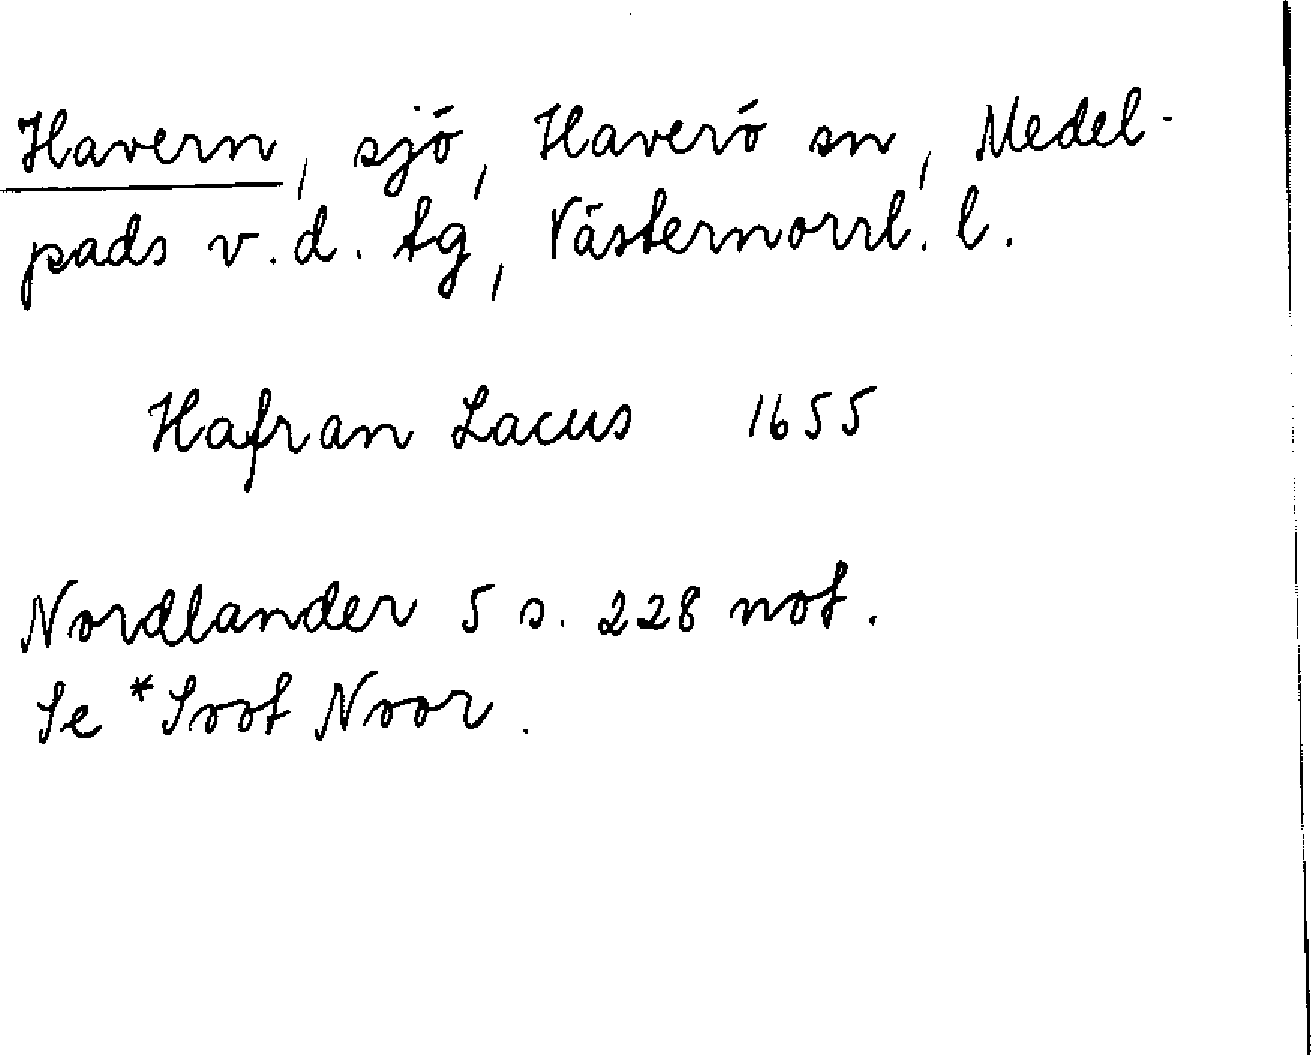 Havern, sjö, Haverö sn, Medel-
pads v.d. tg, Västernorrl. l.
Hafran Lacus 1655
Nordlander 5 s. 228 not.
Se *Soot Noor.